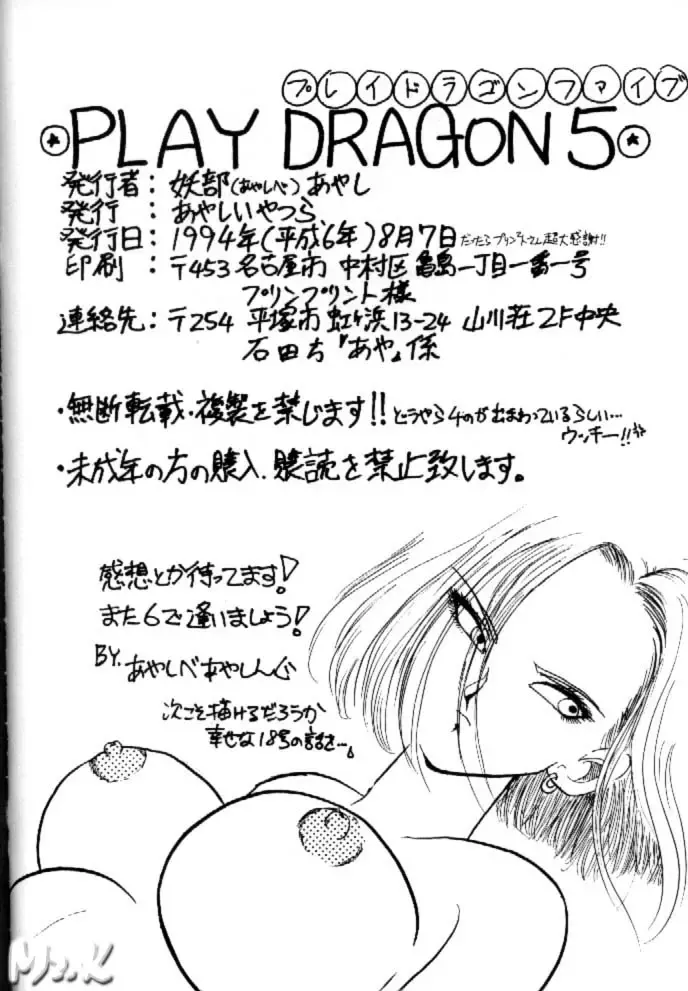 プレイドラゴンファイブ
PLAY DRAGON 5
発行者：妖部(あやしべ)あやし
発行：あやしいやつら
発行日：1994年(平成6年)8月7日 だったらプリンプリントさん超大感謝!!
印刷：〒453 名古屋市 中村区 亀島一丁目一番一号
プリンプリント様
連絡先：〒254 平塚市 虹ヶ浜13-24 山川荘2F中央
石田方『あや』係
・無断転載・複製を禁じます!! どうやら4のが出まわっているらしい…
ウッキー!!
・未成年の方の購入、購読を禁止致します。
感想とか待ってます!
また6で逢いましょう!
BY. あやしべあやしん心
次こそ描けるだろうか
幸せな18号の話を…。
Mr.K